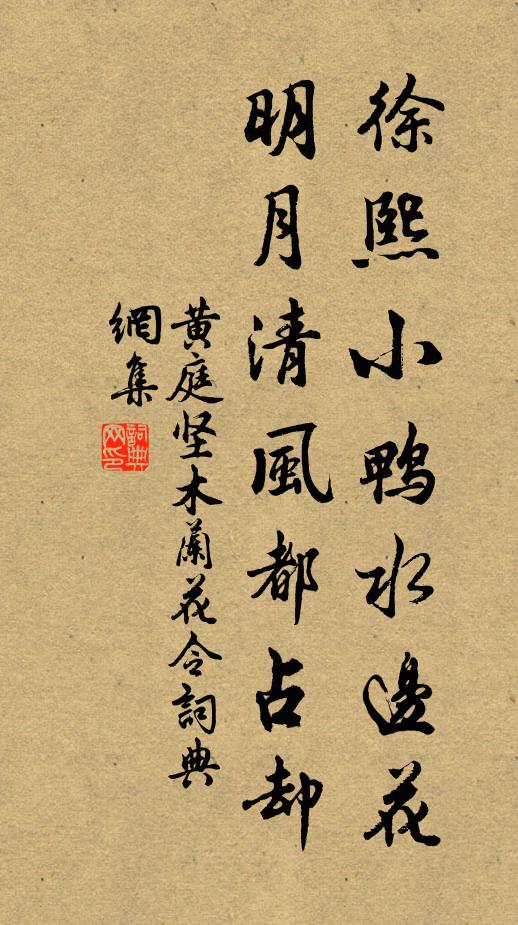 徐熙小鴨水邊花
明月清風都占却
黄庭坚木蘭花令詞典
網集
詞典网印